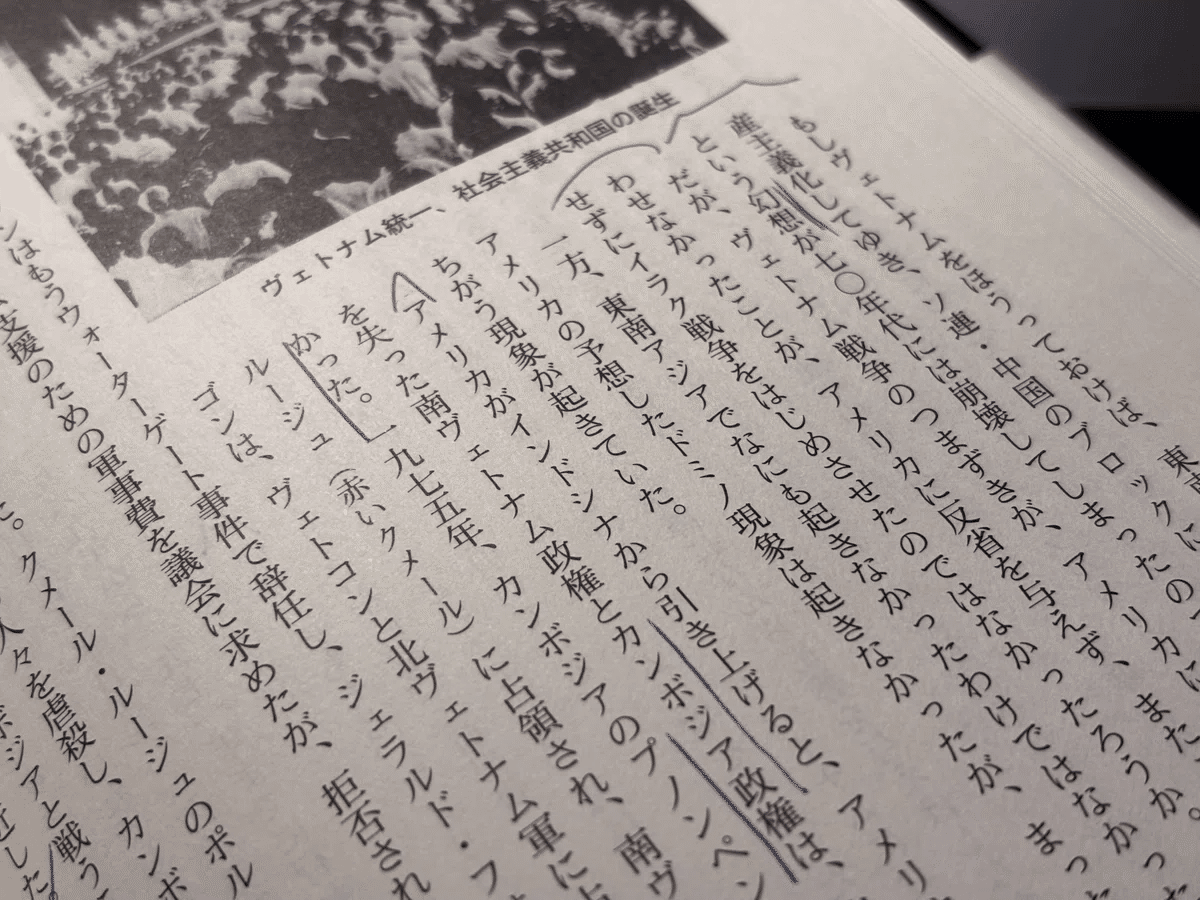 ヴェトナム統一、社会主義共和国の誕生
もしヴェトナムをほうっておけば、東南
産主義化してゆき、ソ連・中国のブロックに
という幻想が七〇年代には崩壊してしまったのに、また、
だが、ヴェトナム戦争のつまずきが、アメリカに
わせなかったことが、アメリカに反省を与えず、
せずにイラク戦争をはじめさせたのではなかったろうか。
一方、東南アジアでなにも起きなかったわけではなかっ
アメリカの予想したドミノ現象は起きなかったが、まっ
ちがう現象が起きていた。
アメリカがインドシナから引き上げると、アメリ
を失った南ヴェトナム政権とカンボジア政権は、
かった。一九七五年、カンボジアのプノンペン
ルージュ（赤いクメール）に占領され、南ヴ
ゴンは、ヴェトコンと北ヴェトナム軍に占
ンはもうウォーターゲート事件で辞任し、ジェラルド・フ
支援のための軍事費を議会に求めたが、拒否され
た。クメール・ルージュのポル
人々を虐殺し、カンボ
ボジアと戦う
近した。